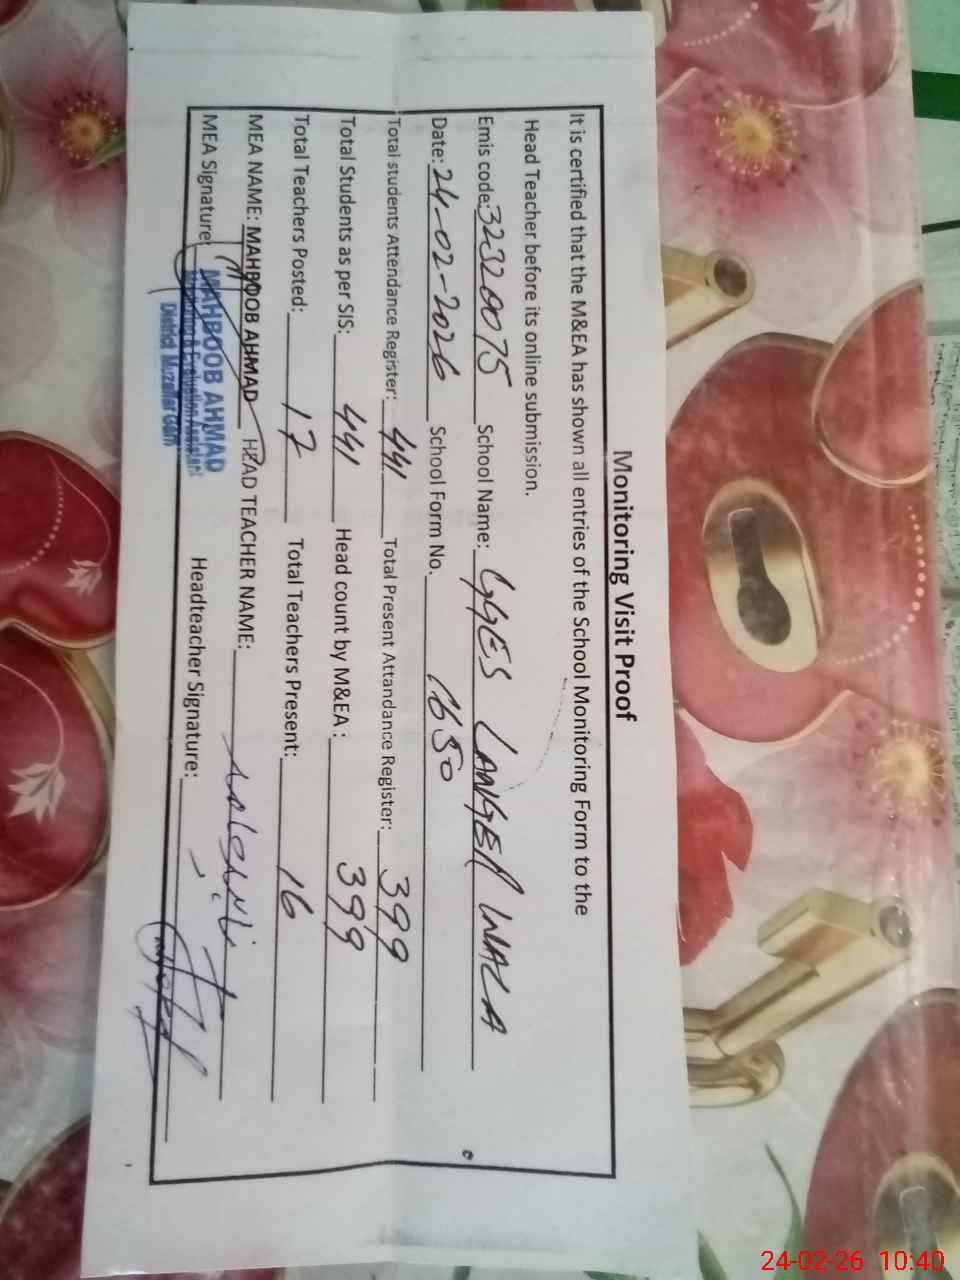 Monitoring Visit Proof
It is certified that the M&EA has shown all entries of the School Monitoring Form to the
Head Teacher before its online submission.
Emis code: 32320075 School Name: GGES LANGER WALA
Date: 24-02-2026 School Form No. 1650
Total students Attendance Register: 441 Total Present Attandance Register: 399
Total Students as per SIS: 441 Head count by M&EA: 399
Total Teachers Posted: 17 Total Teachers Present: 16
MEA NAME: MAHBOOB AHMAD HEAD TEACHER NAME:
MEA Signature: Headteacher Signature:
MAHBOOB AHMAD
Monitoring & Evaluation Assistant
District Muzaffar Garh
24-02-26 10:40